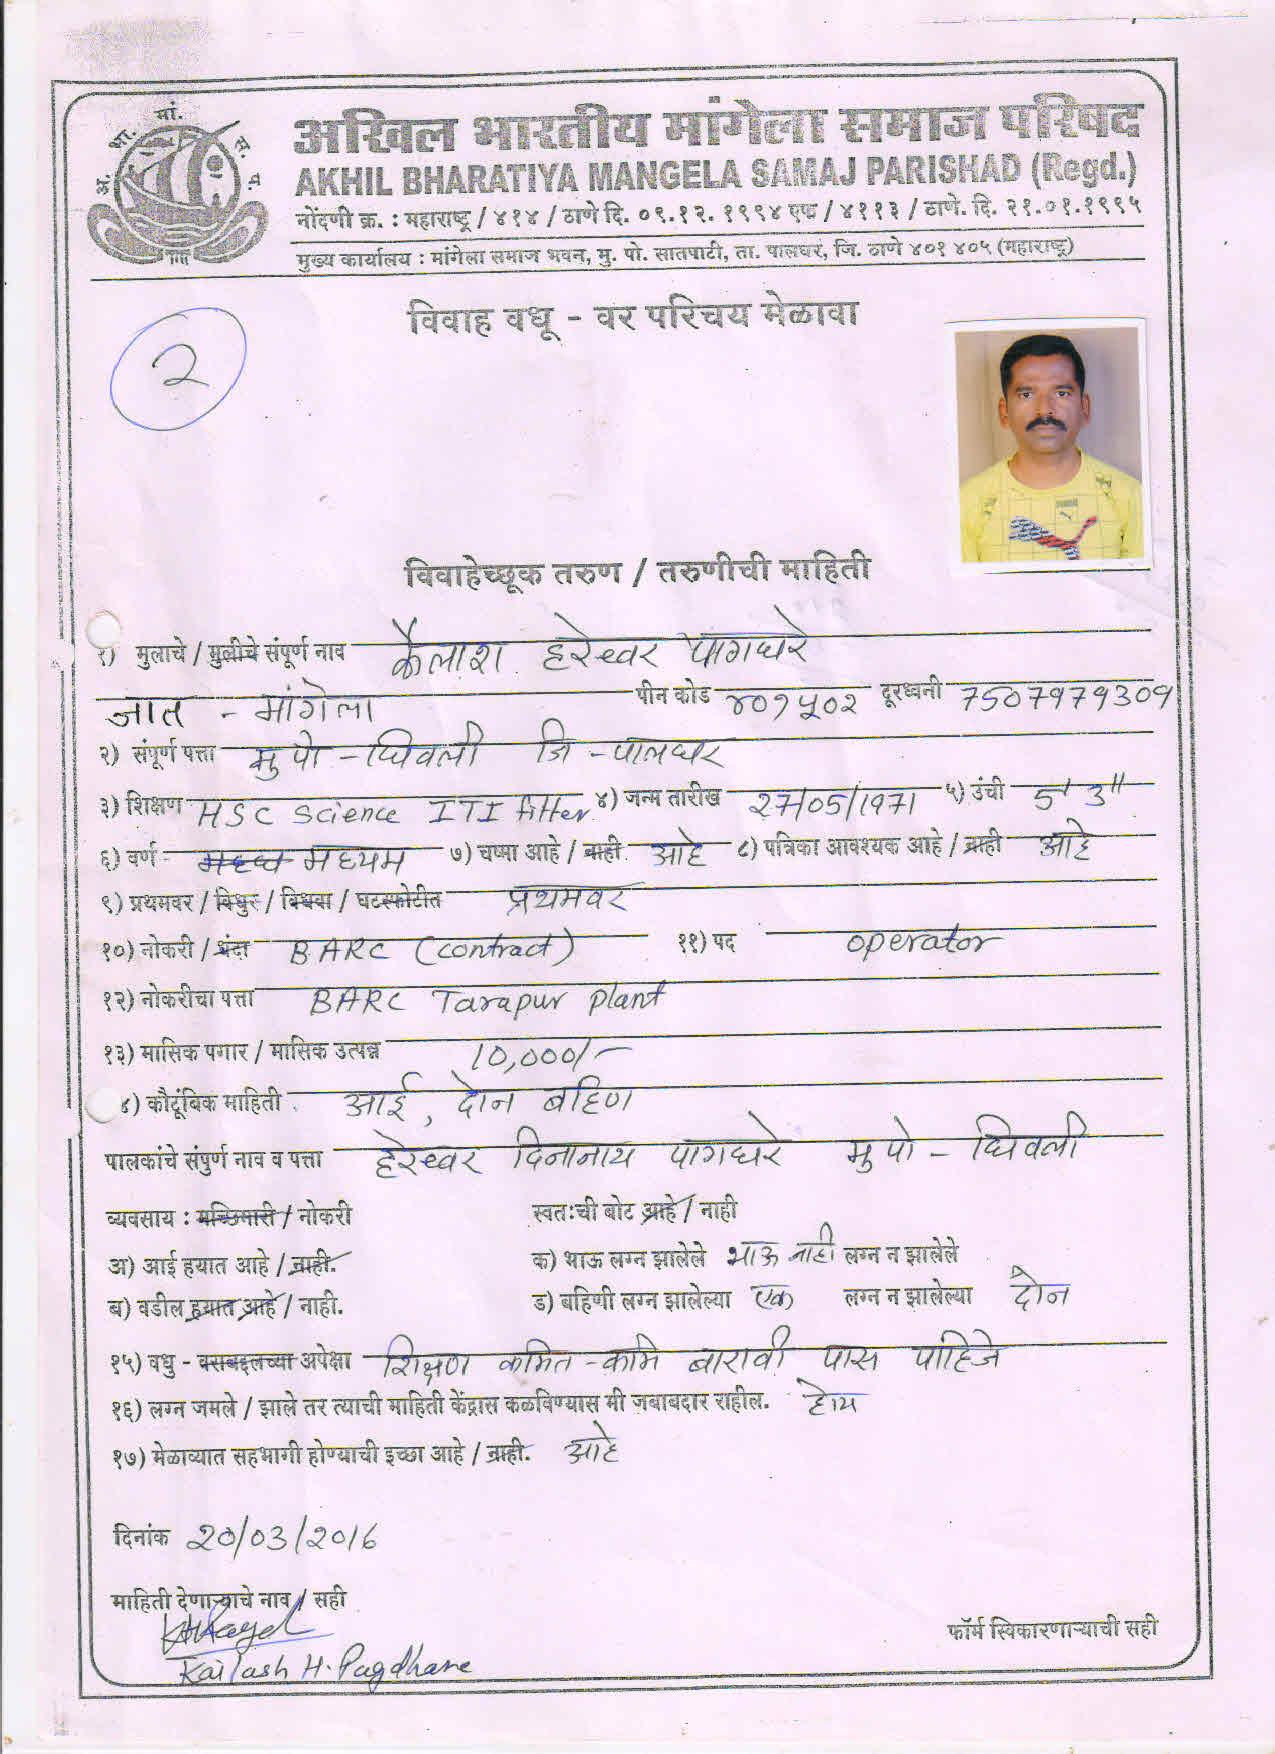 अ. भा. मां. स. प.
अखिल भारतीय मांगेला समाज परिषद
AKHIL BHARATIYA MANGELA SAMAJ PARISHAD (Regd.)
नोंदणी क्र. : महाराष्ट्र / ४१४ / ठाणे दि. ०९.१२. १९९४ एफ / ४११३ / ठाणे. दि. २१.०१.१९९५
मुख्य कार्यालय : मांगेला समाज भवन, मु. पो. सातपाटी, ता. पालघर, जि. ठाणे ४०१ ४०५ (महाराष्ट्र)
विवाह वधू - वर परिचय मेळावा
२
विवाहेच्छूक तरुण / तरुणीची माहिती
१) मुलाचे / मुलीचे संपूर्ण नाव कैलाश हरेश्वर पागधरे
जात - मांगेला पीन कोड ४०१५०२ दूरध्वनी 7507979309
२) संपूर्ण पत्ता मु पो - घिवली जि - पालघर
३) शिक्षण HSC Science ITI fitter ४) जन्म तारीख 27/05/1971 ५) उंची 5' 3"
६) वर्ण - मध्यम ७) चष्मा आहे / नाही. आहे ८) पत्रिका आवश्यक आहे / नाही आहे
९) प्रथमवर / विधुर / विधवा / घटस्फोटीत प्रथमवर
१०) नोकरी / धंदा BARC (contract) ११) पद operator
१२) नोकरीचा पत्ता BARC Tarapur plant
१३) मासिक पगार / मासिक उत्पन्न 10,000/-
४) कौटूंबिक माहिती आई, दोन बहिण
पालकांचे संपुर्ण नाव व पत्ता हरेश्वर दिनानाथ पागधरे मु पो - घिवली
व्यवसाय : मच्छिमारी / नोकरी स्वतःची बोट आहे / नाही
अ) आई हयात आहे / नाही. क) भाऊ लग्न झालेले भाऊ नाही लग्न न झालेले
ब) वडील हयात आहे / नाही. ड) बहिणी लग्न झालेल्या एक लग्न न झालेल्या दोन
१५) वधु - वराबद्दलच्या अपेक्षा शिक्षण कमित - कमि बारावी पास पाहिजे
१६) लग्न जमले / झाले तर त्याची माहिती केंद्रास कळविण्यास मी जबाबदार राहील. होय
१७) मेळाव्यात सहभागी होण्याची इच्छा आहे / नाही. आहे
दिनांक 20/03/2016
माहिती देणाऱ्याचे नाव / सही
Kailash H. Pagdhare
फॉर्म स्विकारणाऱ्याची सही